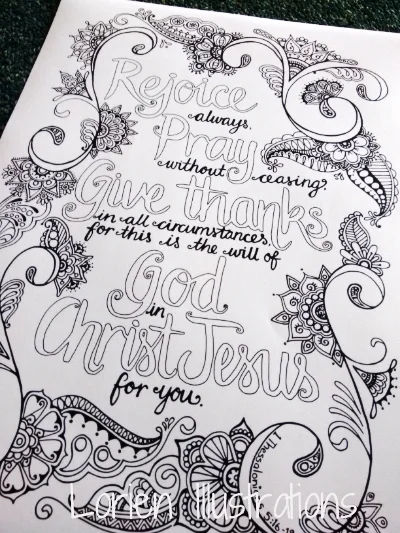 Rejoice
always,
Pray
without ceasing,
Give thanks
in all circumstances,
for this is the will of
God
in
Christ Jesus
for you.
1 Thessalonians 5:16-18
Lorien Illustrations